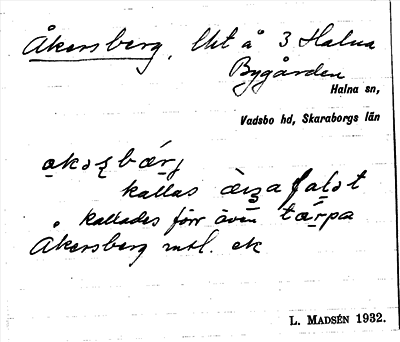 Åkersberg, Uht å 3 Halna
Bygården
Halna sn,
Vadsbo hd, Skaraborgs län
kallas
kallades förr även tarpa
Åkersberg mtl. ek
L. MADSÉN 1932.